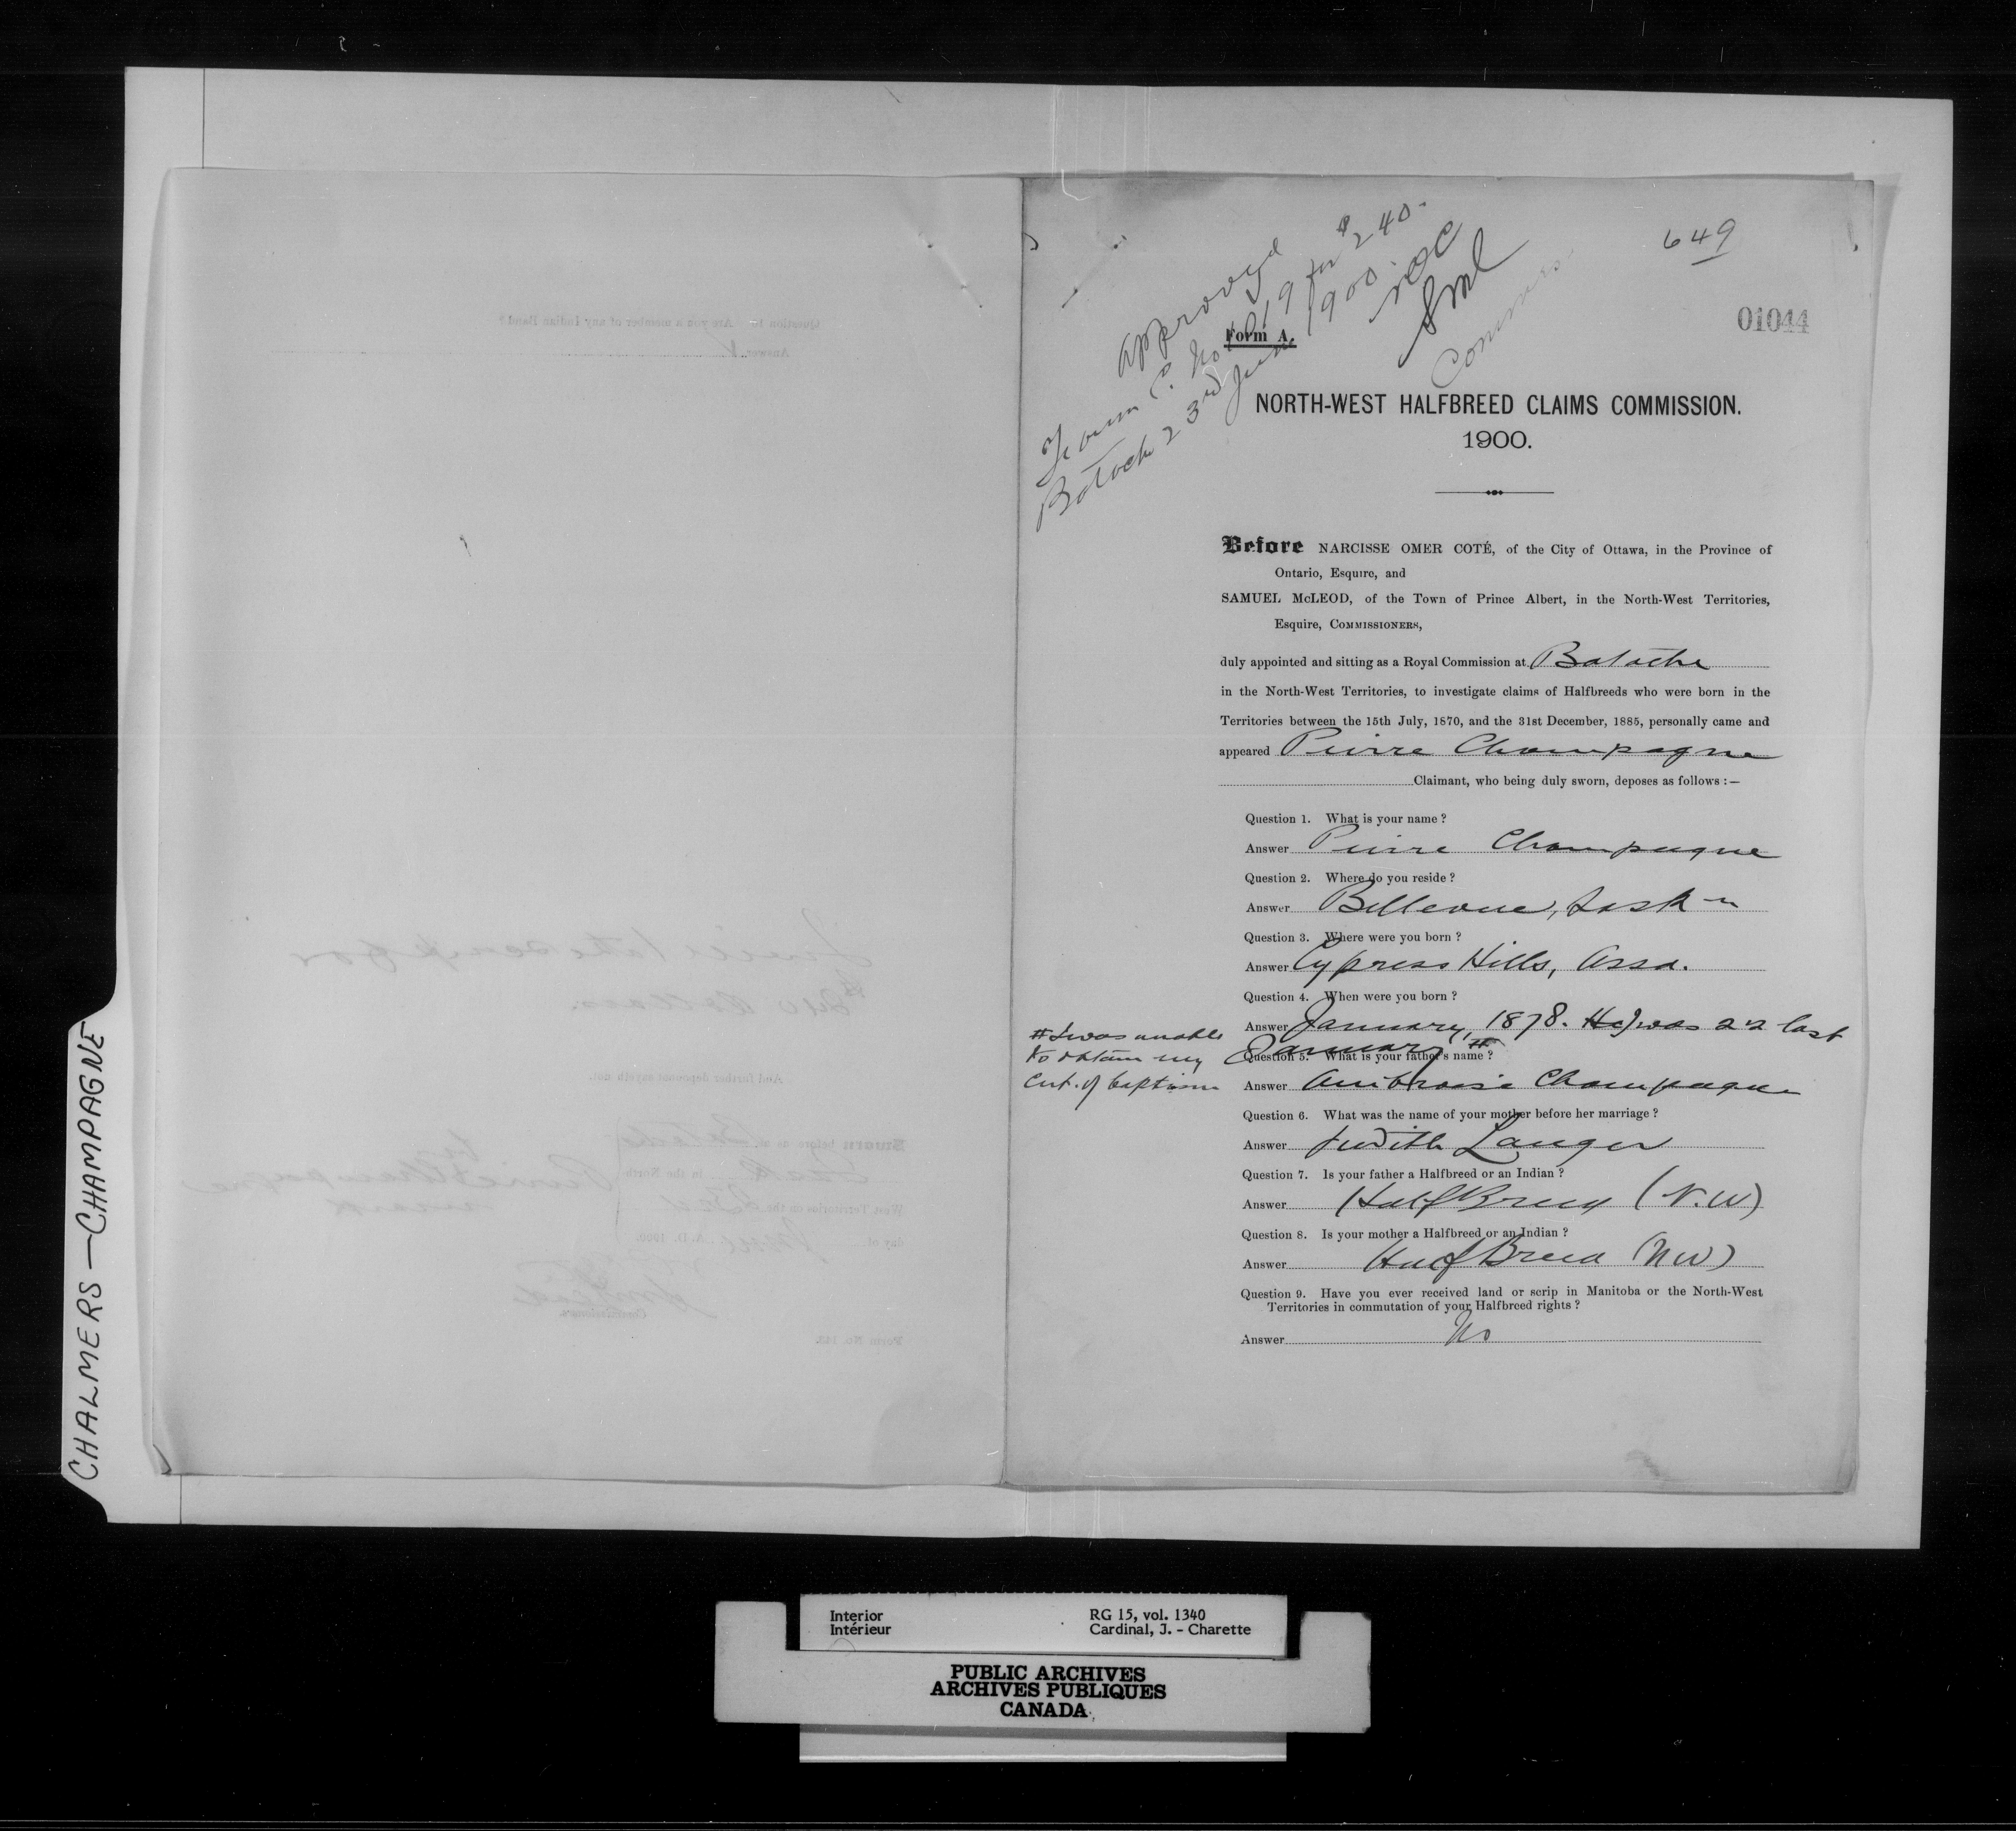 649
01044
approved
Form C. No 1019 for $240.
Batoche 23rd June 1900.
NOC
SML
Commrs.
Form A.
NORTH-WEST HALFBREED CLAIMS COMMISSION.
1900.
Before NARCISSE OMER COTÉ, of the City of Ottawa, in the Province of
Ontario, Esquire, and
SAMUEL McLEOD, of the Town of Prince Albert, in the North-West Territories,
Esquire, COMMISSIONERS,
duly appointed and sitting as a Royal Commission at Batoche
in the North-West Territories, to investigate claims of Halfbreeds who were born in the
Territories between the 15th July, 1870, and the 31st December, 1885, personally came and
appeared Pierre Champagne
Claimant, who being duly sworn, deposes as follows :—
Question 1. What is your name ?
Answer Pierre Champagne
Question 2. Where do you reside ?
Answer Bellevue, Sask-n
Question 3. Where were you born ?
Answer Cypress Hills, Assa.
Question 4. When were you born ?
Answer January, 1878. He I was 22 last
January #
# I was unable
to obtain my
cert. of baptism
Question 5. What is your father's name ?
Answer Ambroise Champagne
Question 6. What was the name of your mother before her marriage ?
Answer Judith Langer
Question 7. Is your father a Halfbreed or an Indian ?
Answer Half Breed (N.W)
Question 8. Is your mother a Halfbreed or an Indian ?
Answer Half Breed (NW)
Question 9. Have you ever received land or scrip in Manitoba or the North-West
Territories in commutation of your Halfbreed rights ?
Answer No
CHALMERS—CHAMPAGNE
Interior
Intérieur
RG 15, vol. 1340
Cardinal, J. - Charette
PUBLIC ARCHIVES
ARCHIVES PUBLIQUES
CANADA